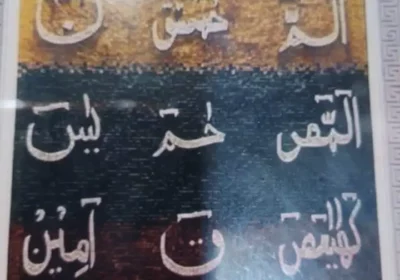 الٓمّٓ عٓسٓقٓ نٓ
الٓمّٓصٓ حٰمٓ يٰسٓ
كٓهٰيٰعٓصٓ قٓ آمِيْن